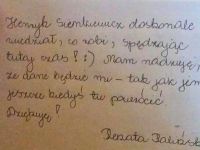 Henryk Sienkiewicz doskonale
wiedział, co robi, spędzając
tutaj czas! :) Mam nadzieję,
że dane będzie mi - tak jak jem
jeszcze kiedyś tu powrócić
Dziękuję!
Renata